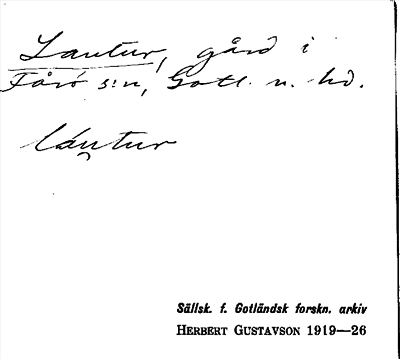 Lautur, gård i
Fårö s:n, Gotl. n. hd.
láu̯tur
Sällsk. f. Gotländsk forskn. arkiv
HERBERT GUSTAVSON 1919—26